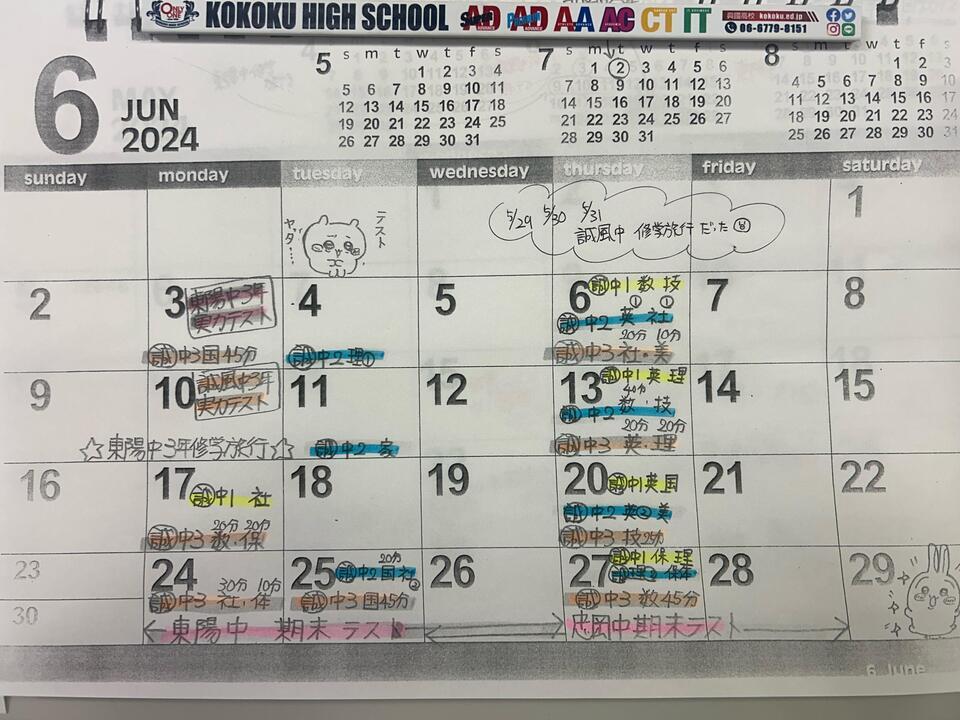 ONLY ONE KOKOKU HIGH SCHOOL AD AD AA AC CT IT 興國高校 kokoku.ed.jp
06-6779-8151
6 JUN 2024
5 s m t w t f s
1 2 3 4
5 6 7 8 9 10 11
12 13 14 15 16 17 18
19 20 21 22 23 24 25
26 27 28 29 30 31
7 s m t w t f s
1 2 3 4 5 6
7 8 9 10 11 12 13
14 15 16 17 18 19 20
21 22 23 24 25 26 27
28 29 30 31
8 s m t w t f s
1 2 3
4 5 6 7 8 9 10
11 12 13 14 15 16 17
18 19 20 21 22 23 24
25 26 27 28 29 30 31
sunday monday tuesday wednesday thursday friday saturday
テスト
ヤダ…
5/29 5/30 5/31
誠風中 修学旅行 だった
1
2
3 東陽中3年
実力テスト
誠中3国45分
4
誠中2理①
5
6 誠中1 数 技
① ①
誠中2 英 社
20分 10分
誠中3 社・美
7
8
9
10 誠風中3年
実力テスト
☆東陽中3年修学旅行☆
11
誠中2 家
12
13 誠中1 英 理
40分
誠中2 数・技
20分 20分
誠中3 英・理
14
15
16
17 誠中1 社
20分 20分
誠中3 数・保
18
19
20 誠中1英国
誠中2 英②美
誠中3 技25分
21
22
23
24 30分 10分
誠中3 社・体
25 20分
誠中2国社②
誠中3 国45分
26
27 誠中1保 理
誠理② 保体
誠中3 数45分
28
29
30
東陽中 期末 テスト
忠岡中期末テスト
6 June